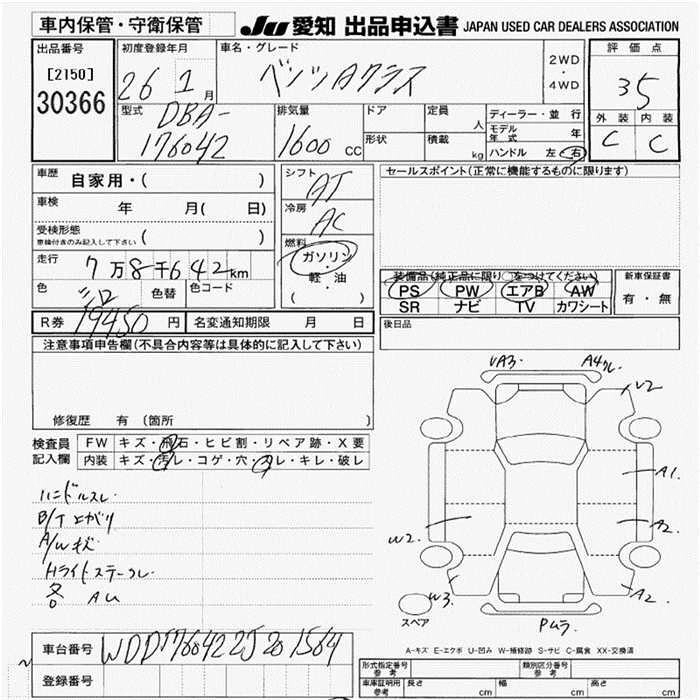 車内保管・守衛保管
JU 愛知 出品申込書 JAPAN USED CAR DEALERS ASSOCIATION
出品番号
[2150]
30366
初度登録年月
26 1 月
車名・グレード
ベンツAクラス
2WD
・
4WD
評価点
35
外装 内装
C C
型式
DBA-
176042
排気量
1600 cc
ドア
形状
定員
人
積載
kg
ディーラー・並行
モデル年式 年
ハンドル 左 右
車歴 自家用・( )
車検 年 月( 日)
受検形態
車検付きのみ記入して下さい ( )
走行 7万8千642km
色 シロ 色替 色コード
R券 19450 円 名変通知期限 月 日
シフト AT
冷房 AC
燃料
ガソリン
・
軽・油
( )
セールスポイント(正常に機能するものに限ります)
装備品(純正品に限り○をつけてください)
PS PW エアB AW
SR ナビ TV カワシート
新車保証書
有・無
後日品
注意事項申告欄(不具合内容等は具体的に記入して下さい)
修復歴 有 (箇所 )
検査員記入欄
FW キズ・飛石・ヒビ割・リペア跡・X要
内装 キズ・汚レ・コゲ・穴・スレ・キレ・破レ
ハンドルスレ.
B/T上がり
A/Wキズ
Hライトステークレ
各 AU
VA3. A4クレ.
V2
A1.
A2.
W2.
W3.
A2.
スペア
Pムラ.
A-キズ E-エクボ U-凹み W-補修跡 S-サビ C-腐食 XX-交換済
車台番号 WDD1760422J201564
登録番号
形式指定番号
参考
類別区分番号
参考
車庫証明用
参考
長さ cm
幅 cm
高さ cm